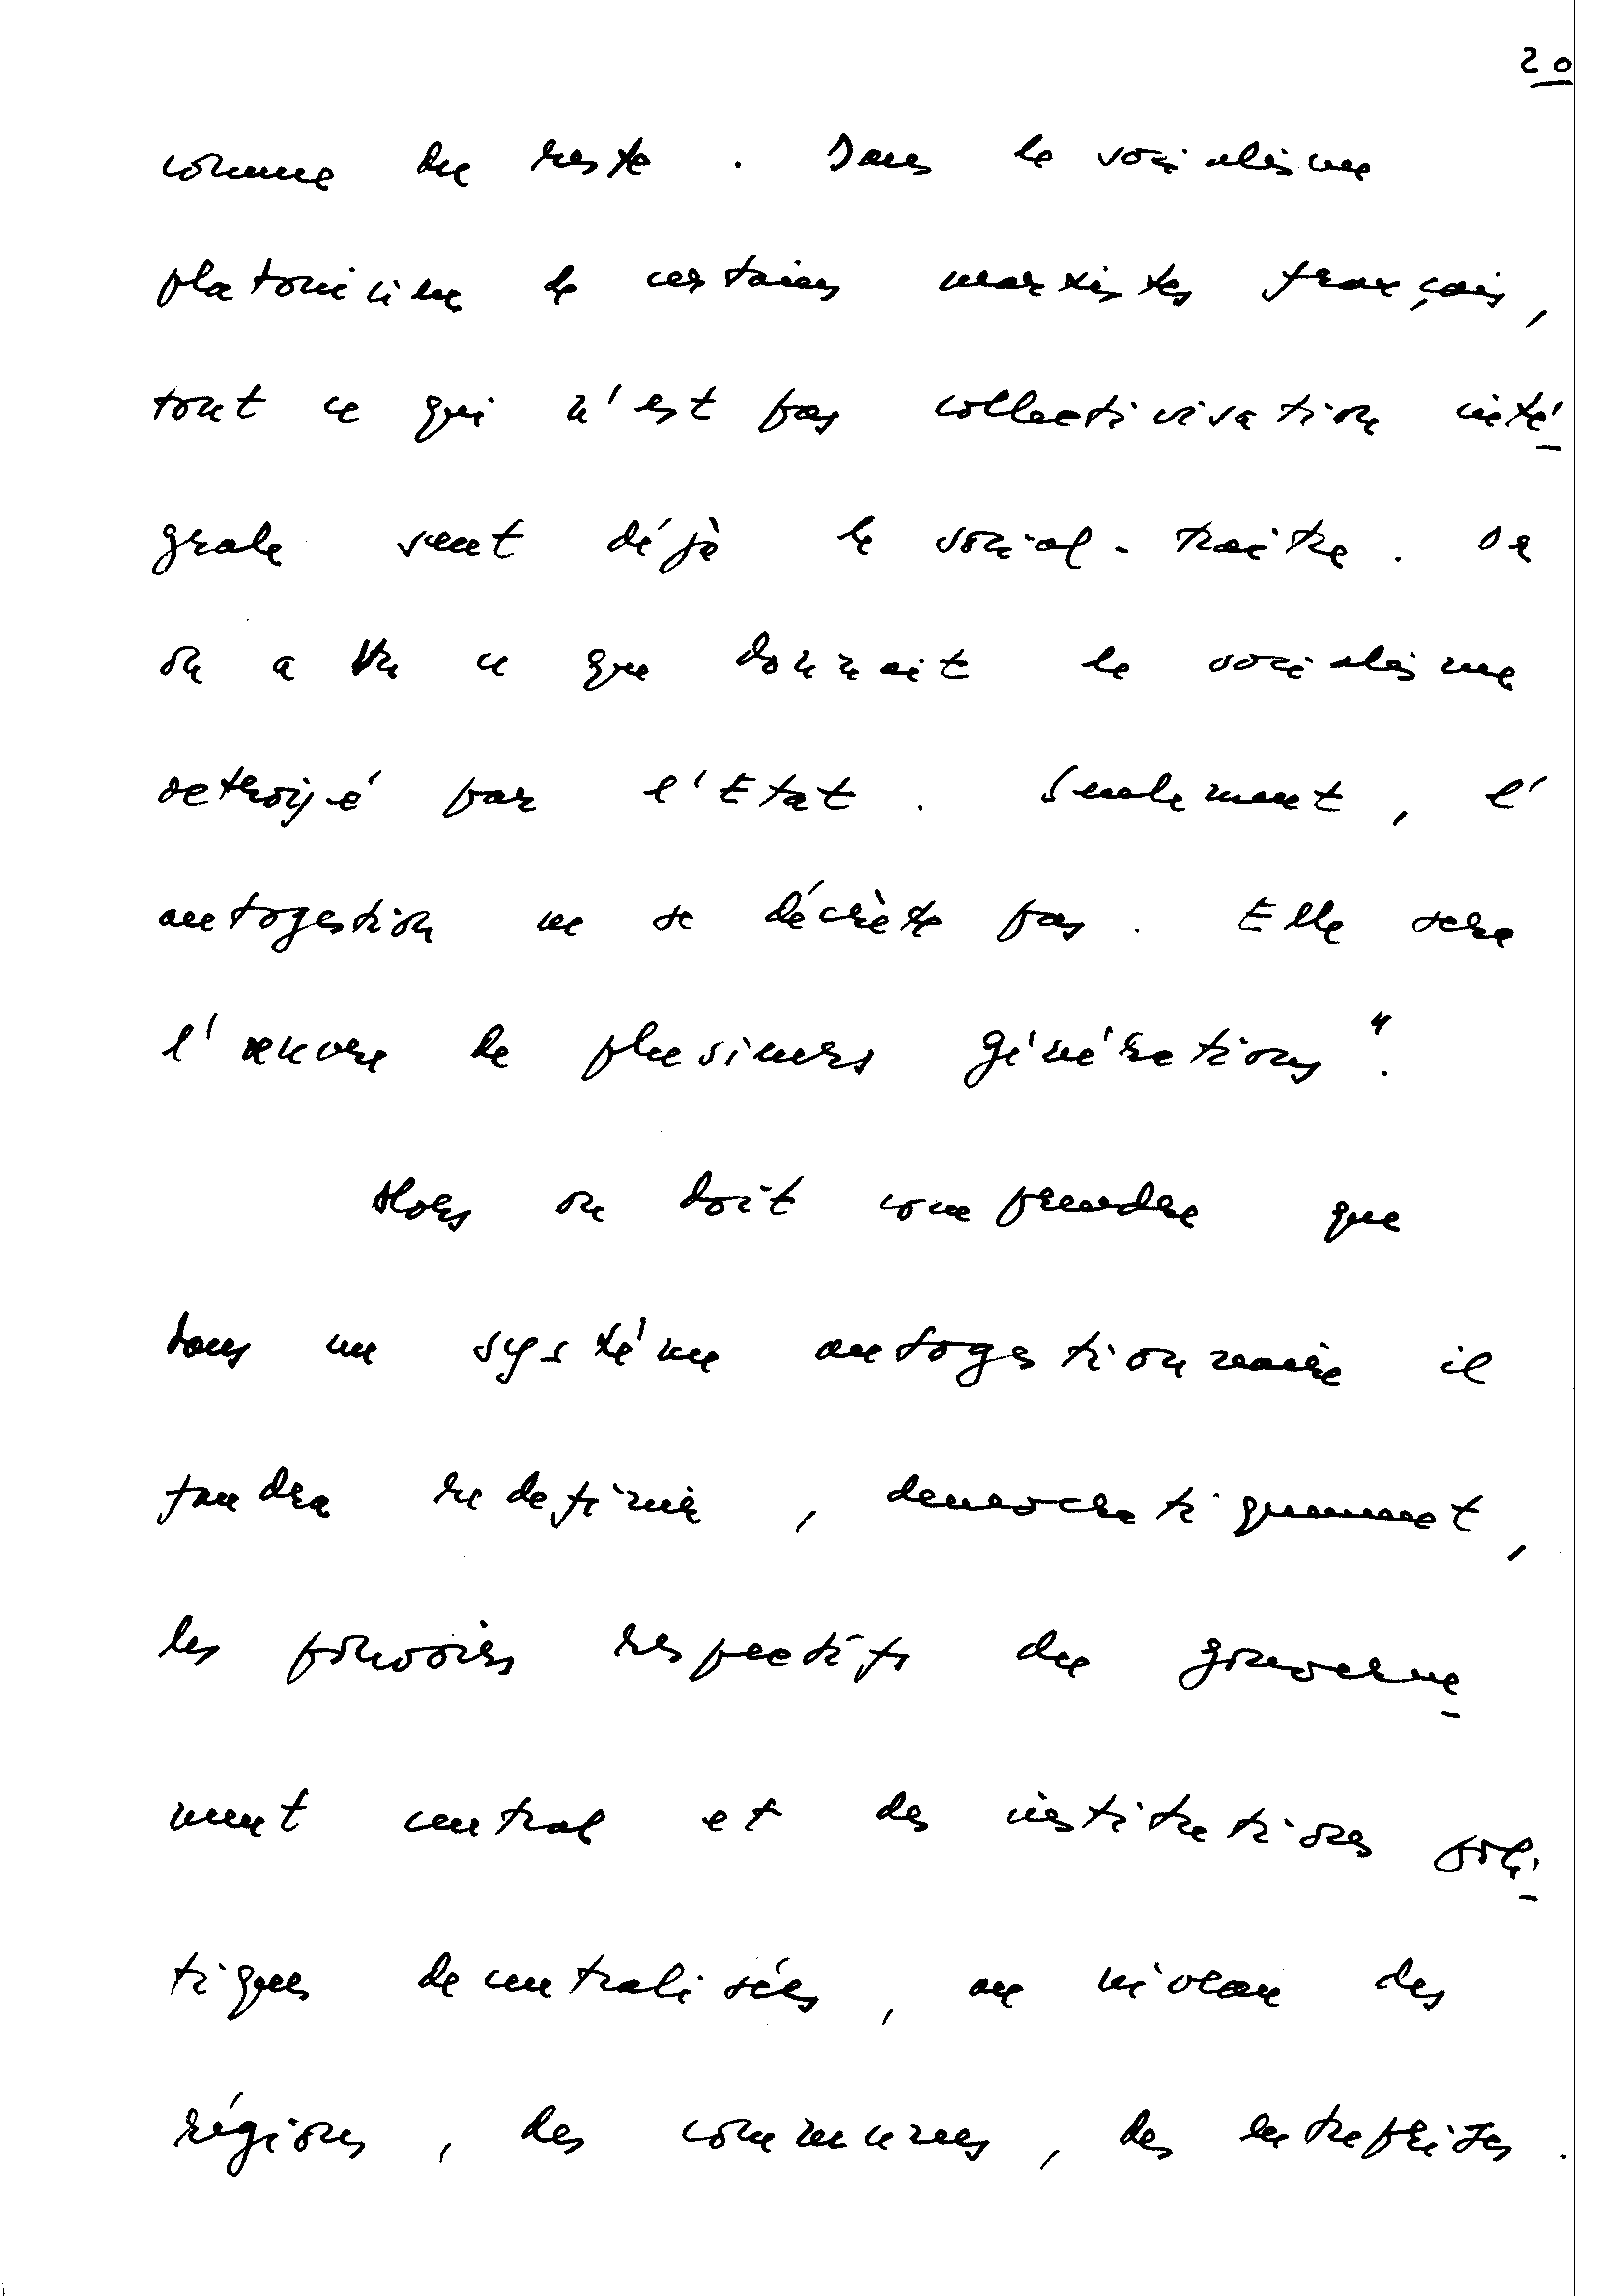 20
comme du reste. Dans le socialisme
platonicien de certains marxistes français,
tout ce qui n'est pas collectivisation inté-
grale sent déjà le social-traitre. Or
on a vu ce que donnait le socialisme
octroyé par l'Etat. Seulement, l'
autogestion ne se décrète pas. Elle sera
l'œuvre de plusieurs générations".
Alors on doit comprendre que
dans un systéme autogestionnaire il
faudra redefinir, democratiquement,
les pouvoirs respectifs du gouverne-
ment central et des institutions poli-
tiques decentralisées, au niveau des
régions, des communes, des entreprises.